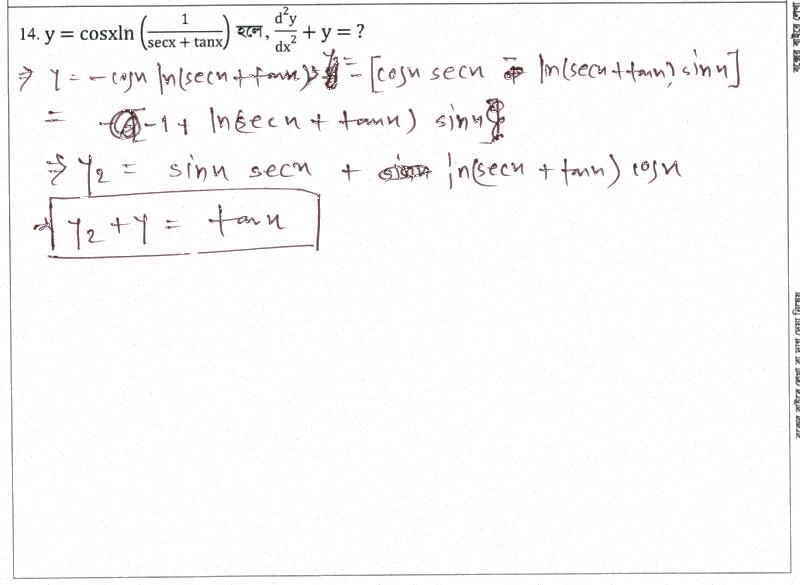 14. y = cosxln (1/(secx + tanx)) হলে, d²y/dx² + y = ?
⇒ y = -cosx ln(secx + tanx) ⇒ y₁ = -[cosx secx - ln(secx + tanx) sinx]
= -1 + ln(secx + tanx) sinx
⇒ y₂ = sinx secx + ln(secx + tanx) cosx
⇒ y₂ + y = tanx